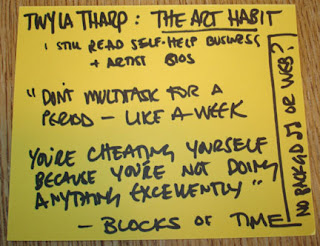 TWYLA THARP: THE ART HABIT
I STILL READ SELF-HELP BUSINESS
+ ARTIST BIOS
"DON'T MULTITASK FOR A
PERIOD – LIKE A WEEK
YOU'RE CHEATING YOURSELF
BECAUSE YOU'RE NOT DOING
ANYTHING EXCELLENTLY"
– BLOCKS OF TIME
NO BACKGD OR WEB?